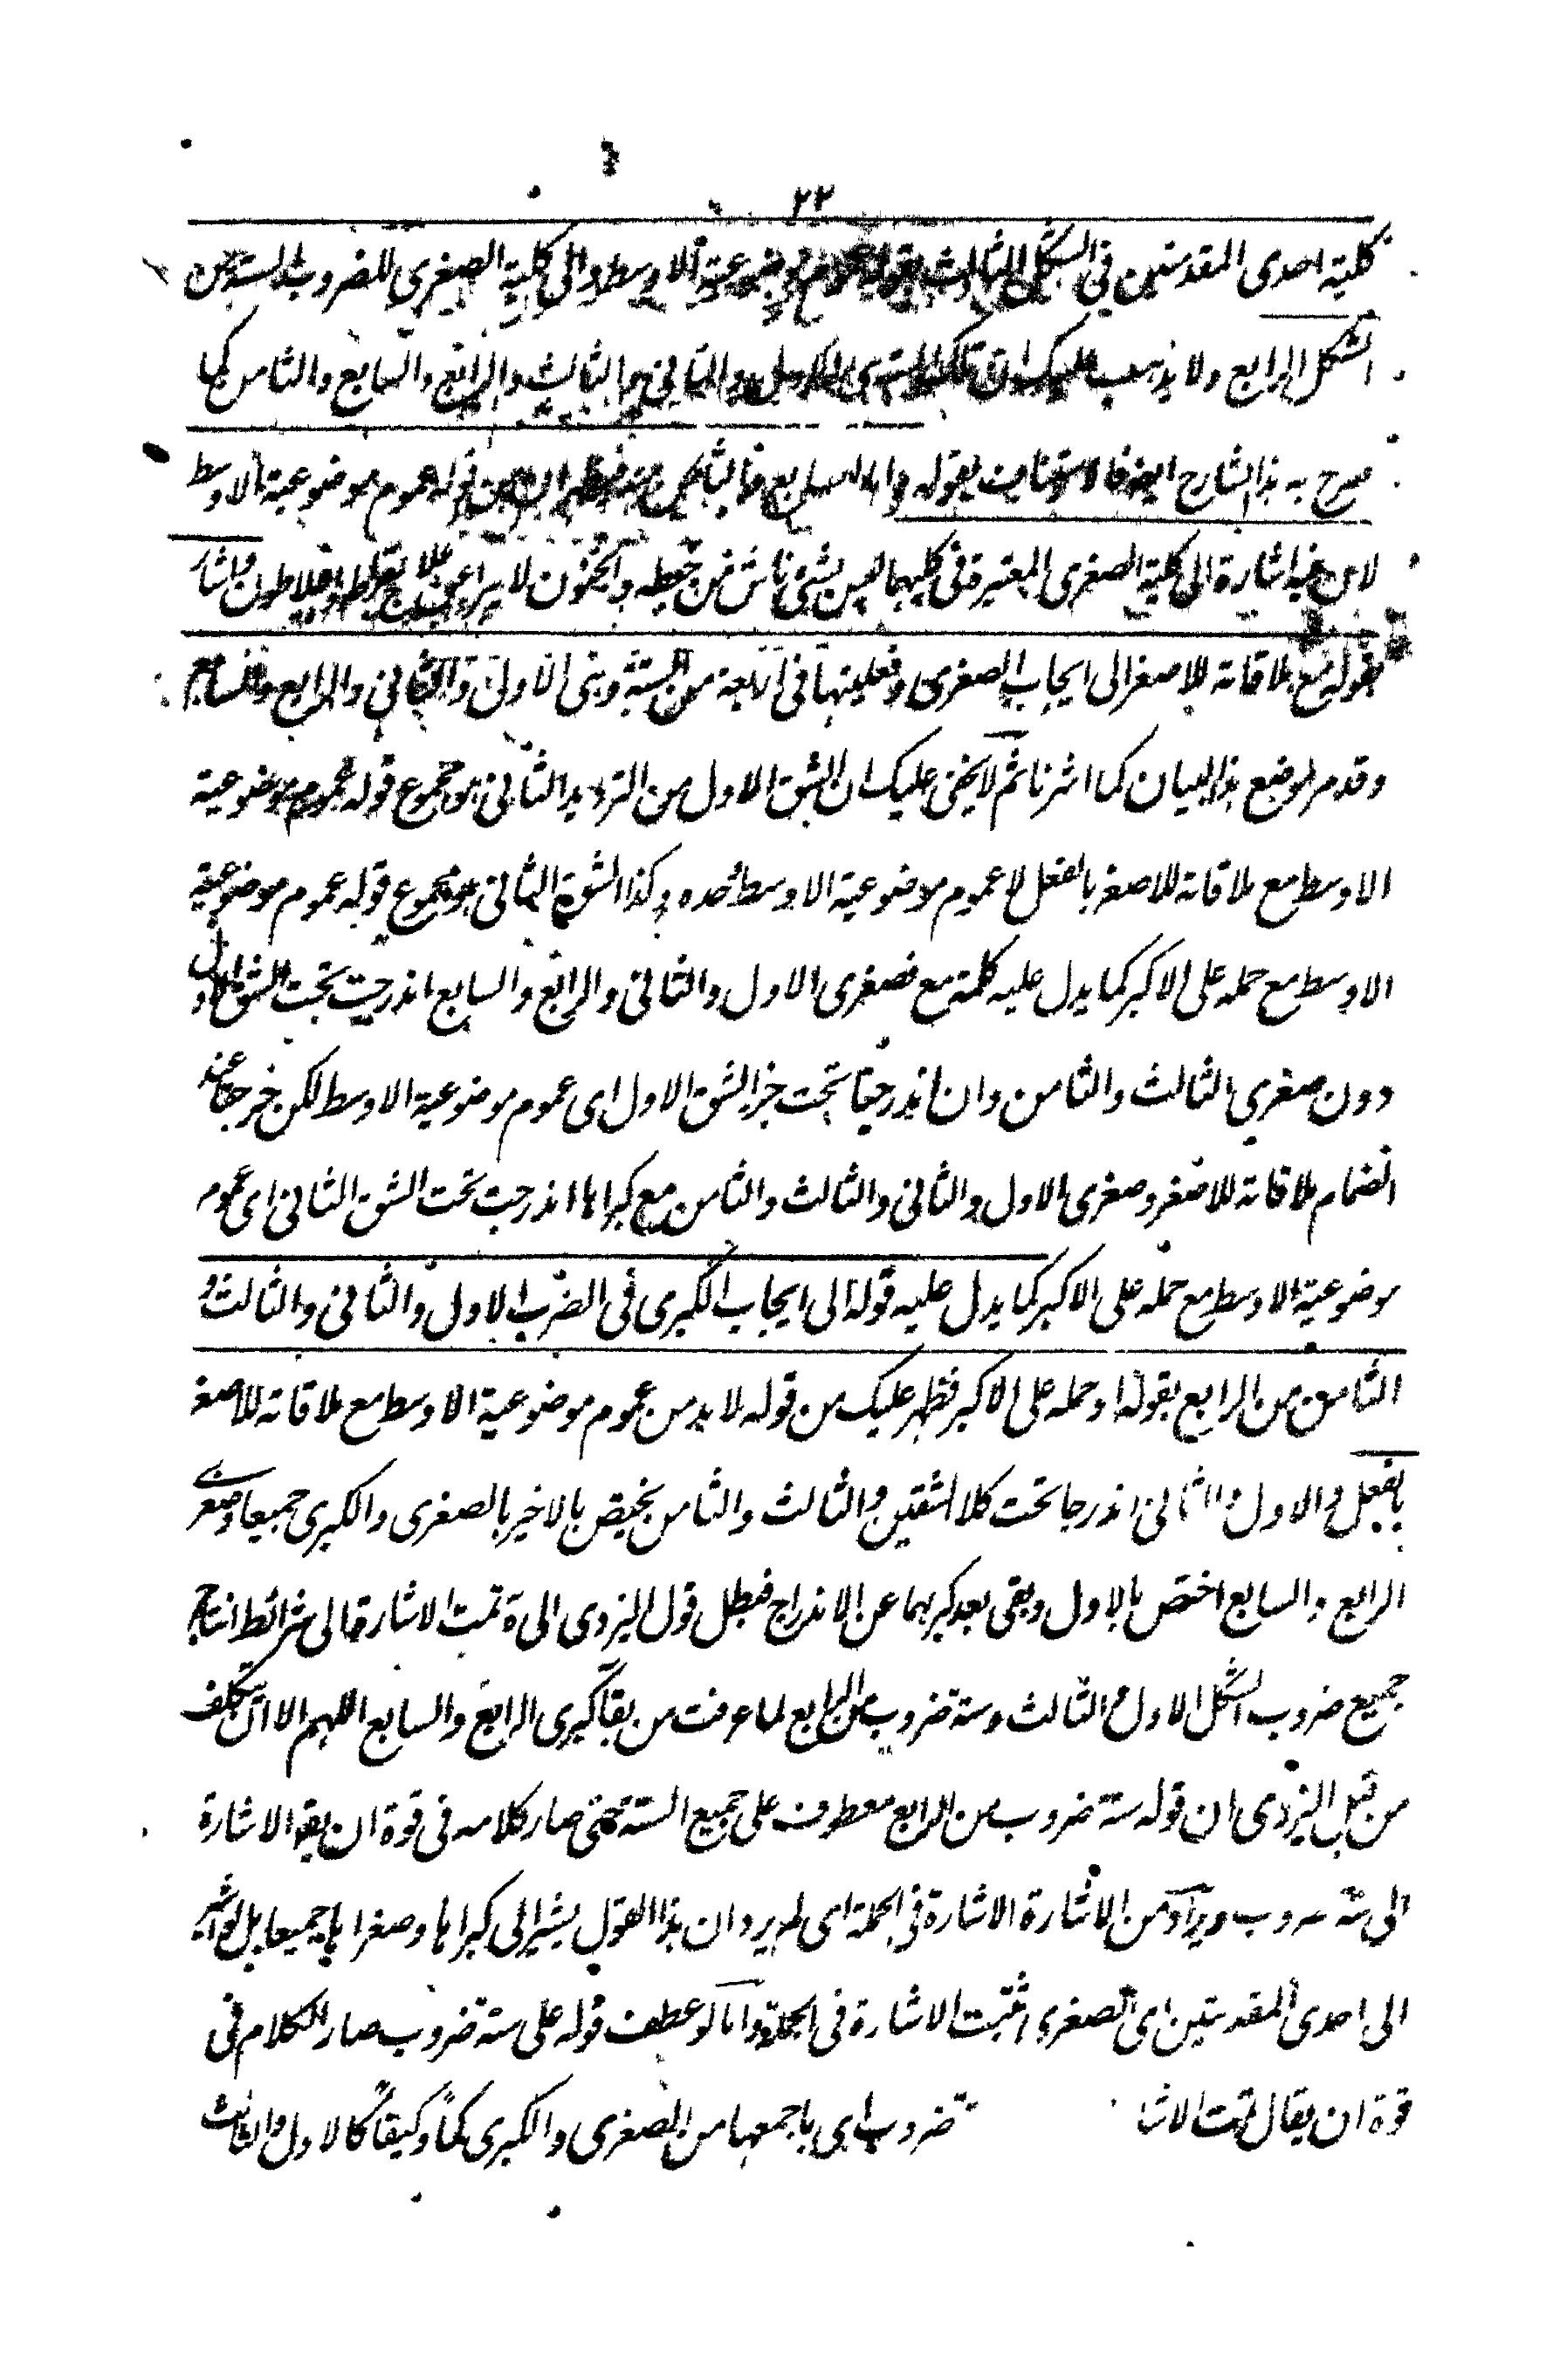 ٢٢
كلية احدى المقدمتين فى الشكل الثالث بقوله عموم موضوعية الاوسط والى كلية الصغرى للضروب الستة من
الشكل الرابع ولا يذهب عليك ان تلك الستة هى الاول والثانى والثالث والرابع والسابع والثامن كما
صرح به هذا الشارح ايضا بقوله من قوله عموم موضوعية الاوسط
لان فيه اشارة الى كلية الصغرى المعتبرة فى كليهما ليس بشئ ناش عن خبطه والجنون لا يبرأ واشار
بقوله مع ملاقاته للاصغر الى ايجاب الصغرى وفعليتها فى اربعة من الستة وهى الاول والثانى والرابع والسابع
وقد مر توضيح هذا البيان كما اشرنا ثم لا يخفى عليك ان الشق الاول من الترديد الثانى هو مجموع قوله عموم موضوعية
الاوسط مع ملاقاته للاصغر بالفعل لا عموم موضوعية الاوسط وحده وكذا الشق الثانى هو مجموع قوله عموم موضوعية
الاوسط مع حمله على الاكبر كما يدل عليه كلمة مع فصغرى الاول والثانى والرابع والسابع اندرجت تحت الشق الاول
دون صغرى الثالث والثامن وان اندرجتا تحت جزء الشق الاول اى عموم موضوعية الاوسط لكن خرجتا عند
انضمام ملاقاته للاصغر وصغرى الاول والثانى والثالث والثامن مع كبراها اندرجت تحت الشق الثانى اى عموم
موضوعية الاوسط مع حمله على الاكبر كما يدل عليه قوله الى ايجاب الكبرى فى الضرب الاول والثانى والثالث و
الثامن من الرابع بقوله او حمله على الاكبر فظهر عليك من قوله لا بد من عموم موضوعية الاوسط مع ملاقاته للاصغر
بالفعل والاول والثانى اندرجا تحت كلا الشقين والثالث والثامن يختص بالاخير بالصغرى والكبرى جميعا وصغرى
الرابع والسابع اختص بالاول وبقى بعد كبريهما عن الاندراج فبطل قول اليزدى الى ة تمت الاشارة الى شرائط انتاج
جميع ضروب الشكل الاول والثالث وستة ضروب من الرابع لما عرفت من بقا كبرى الرابع والسابع اللهم الا ان يتكلف
من قبل اليزدى ان قوله ستة ضروب من الرابع معطوف على جميع الستة حتى صار كلامه فى قوة ان يقع الاشارة
الى ستة ضروب ويراد من الاشارة الاشارة فى الجملة اى لم يرد ان هذا القول يشير الى كبراها وصغراها جميعا بل لو اشير
الى احدى المقدمتين اى الصغرى اثبت الاشارة فى الجملة واما لو عطف قوله على ستة ضروب صار الكلام فى
قوة ان يقال تمت الاشا ضروب اى باجمعها من الصغرى والكبرى كما وكيفا كالاول والثالث